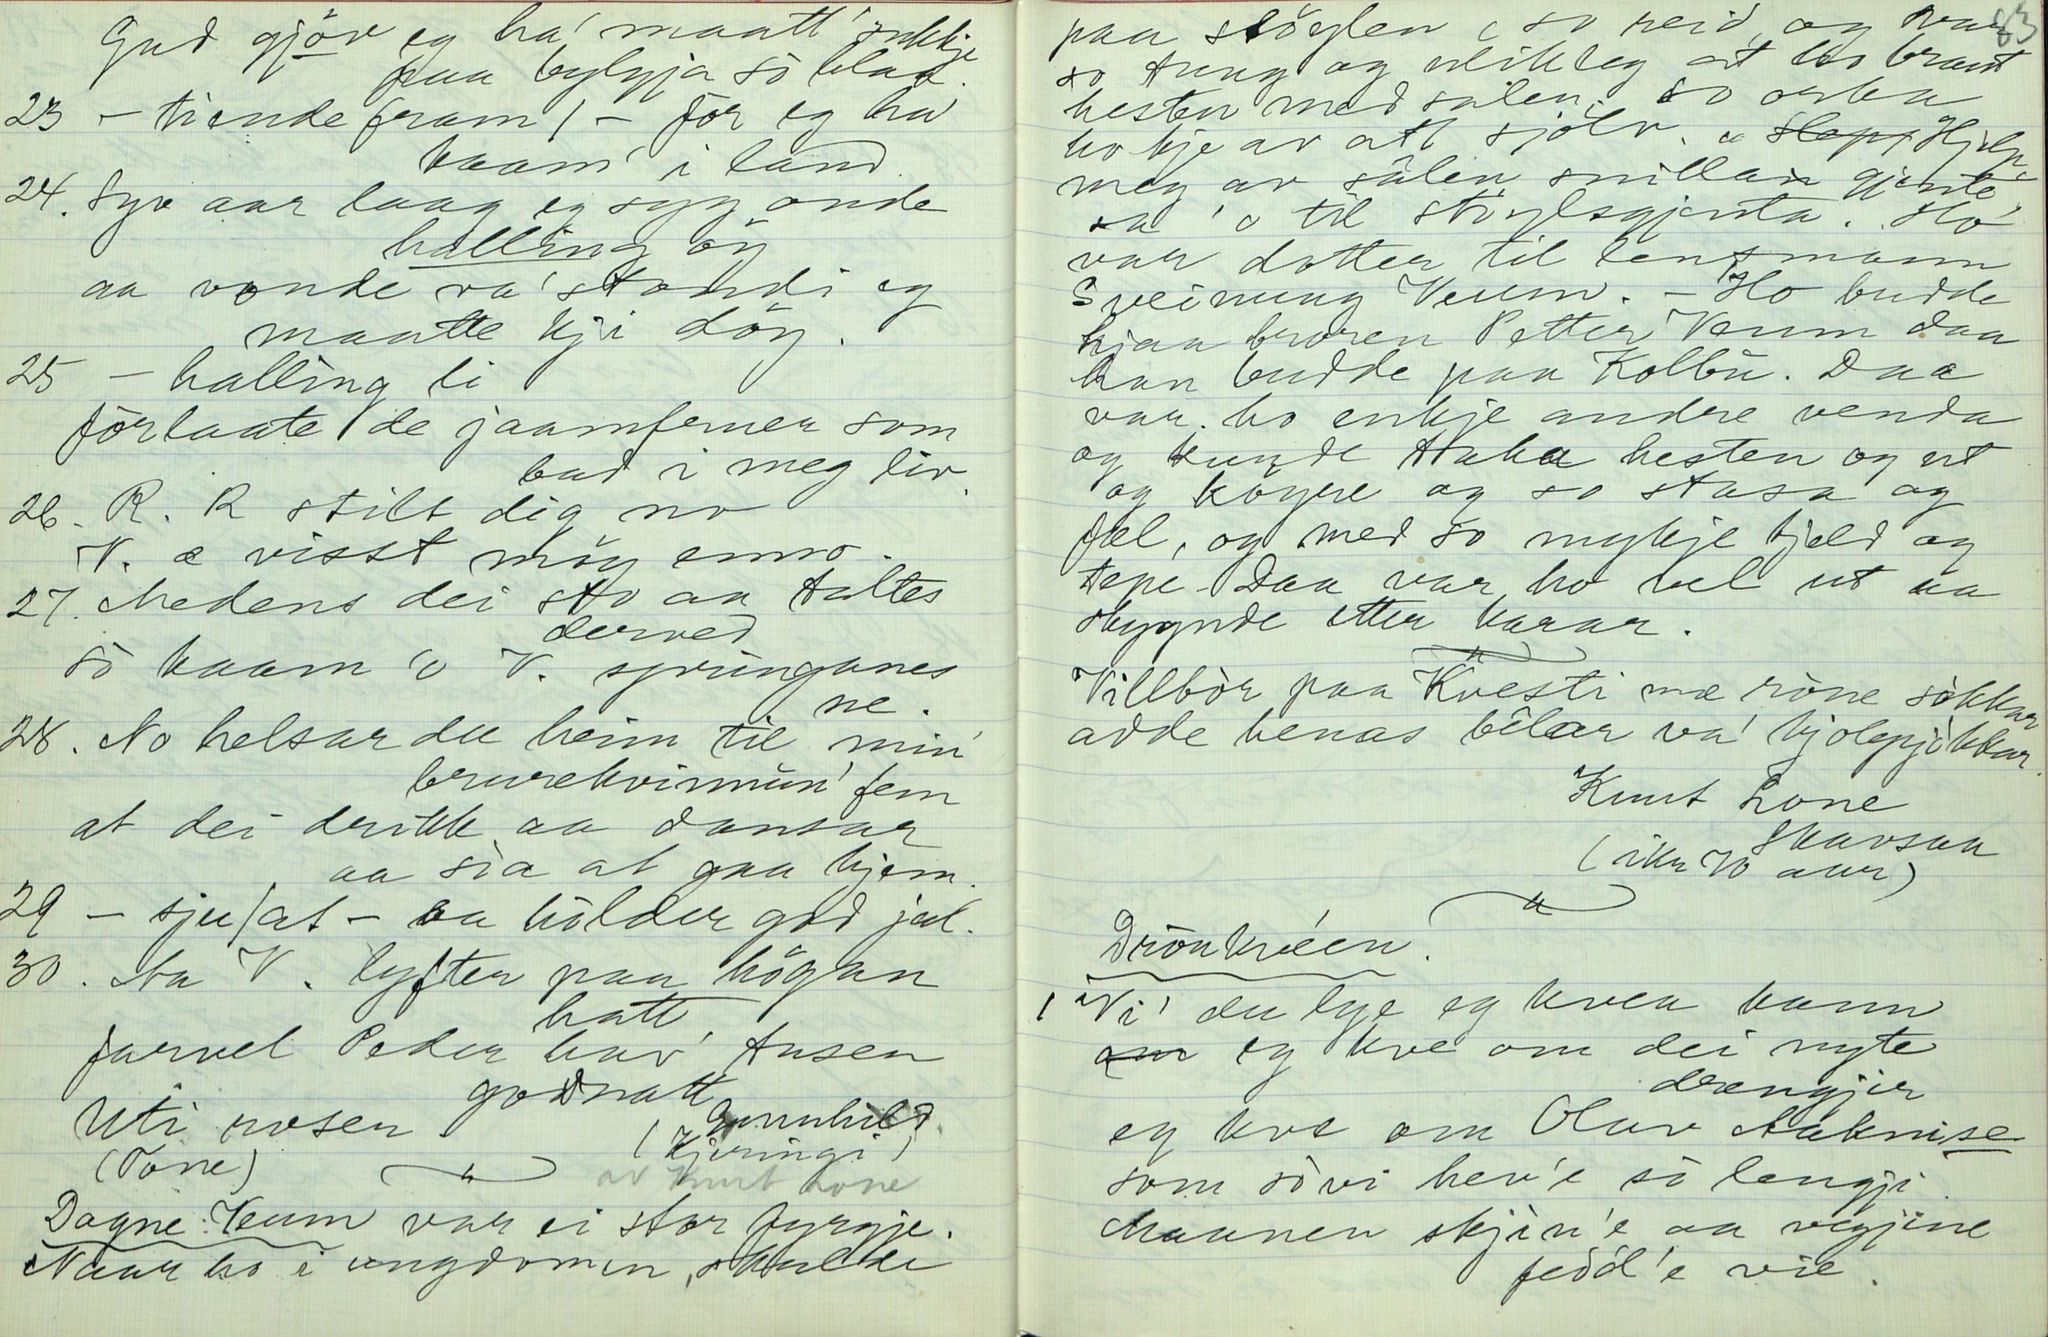 Gud gjöv eg ha' maatt' sukkje
paa bylgja så blaa.
23 – tiende fram / – för eg ha'
kaam' i land.
24. Syv aar laag eg syg onde
halling öy
aa vonde va' standi eg
maatte kji döy.
25 – halling li
förlaate de jaamferner som
bad i meg liv.
26. R. R stilt dig no
V. æ visst möy enno.
27. Medens dei sto aa taltes
derved
så kaam 'o V. springanes
ne.
28. No helsar du heim til min'
brurekvinnun' fem
at dei drikk aa dansar
aa sia at gaa hjem.
29 – sju / at – aa hölder god jul.
30. Aa V. lyfter paa högan
hatt
farvel Peder hav' tusen
godnatt
Uti rosen (Gunnhild
(Tone) Kjeringi)
av Knut Lone
Dagne Veum var ei stor fyrgje.
Naar ho i ungdomen, skulde
83
paa stöylen, so reid, og var
so tung og ulikleg at ho braut
hesten med salen, so orka
ho kje av att sjölv. " Slepp Hjelp
meg av sâlen, snillan gjente',
sa 'o til stöylsgjenta. Ho
var dotter til lensmann
Sveinung Veum. – Ho budde
hjaa broren Petter Veum daa
han budde paa Kolbù. Daa
var ho enkje andre venda
og kunde taka hesten og ut
og köyre og so stasa og
fæl, og med so mykje kjeld og
tepe. Daa var ho vel ut aa
skygnde etter karar.
Villbòr paa Kvesti mæ röne sökkar
adde henas bêlar va' kjolepjikkar.
Knut Lone
Skavsaa
(ikr 70 aar)
Drönkvéen.
1 Vi' du lye eg kvea kann
om eg kve om dei nyte
drengjir
eg kve om Olav Aaknise
som söv i hev'e så lengji.
Maanen skjin'e aa vegjine
fedd'e vie.